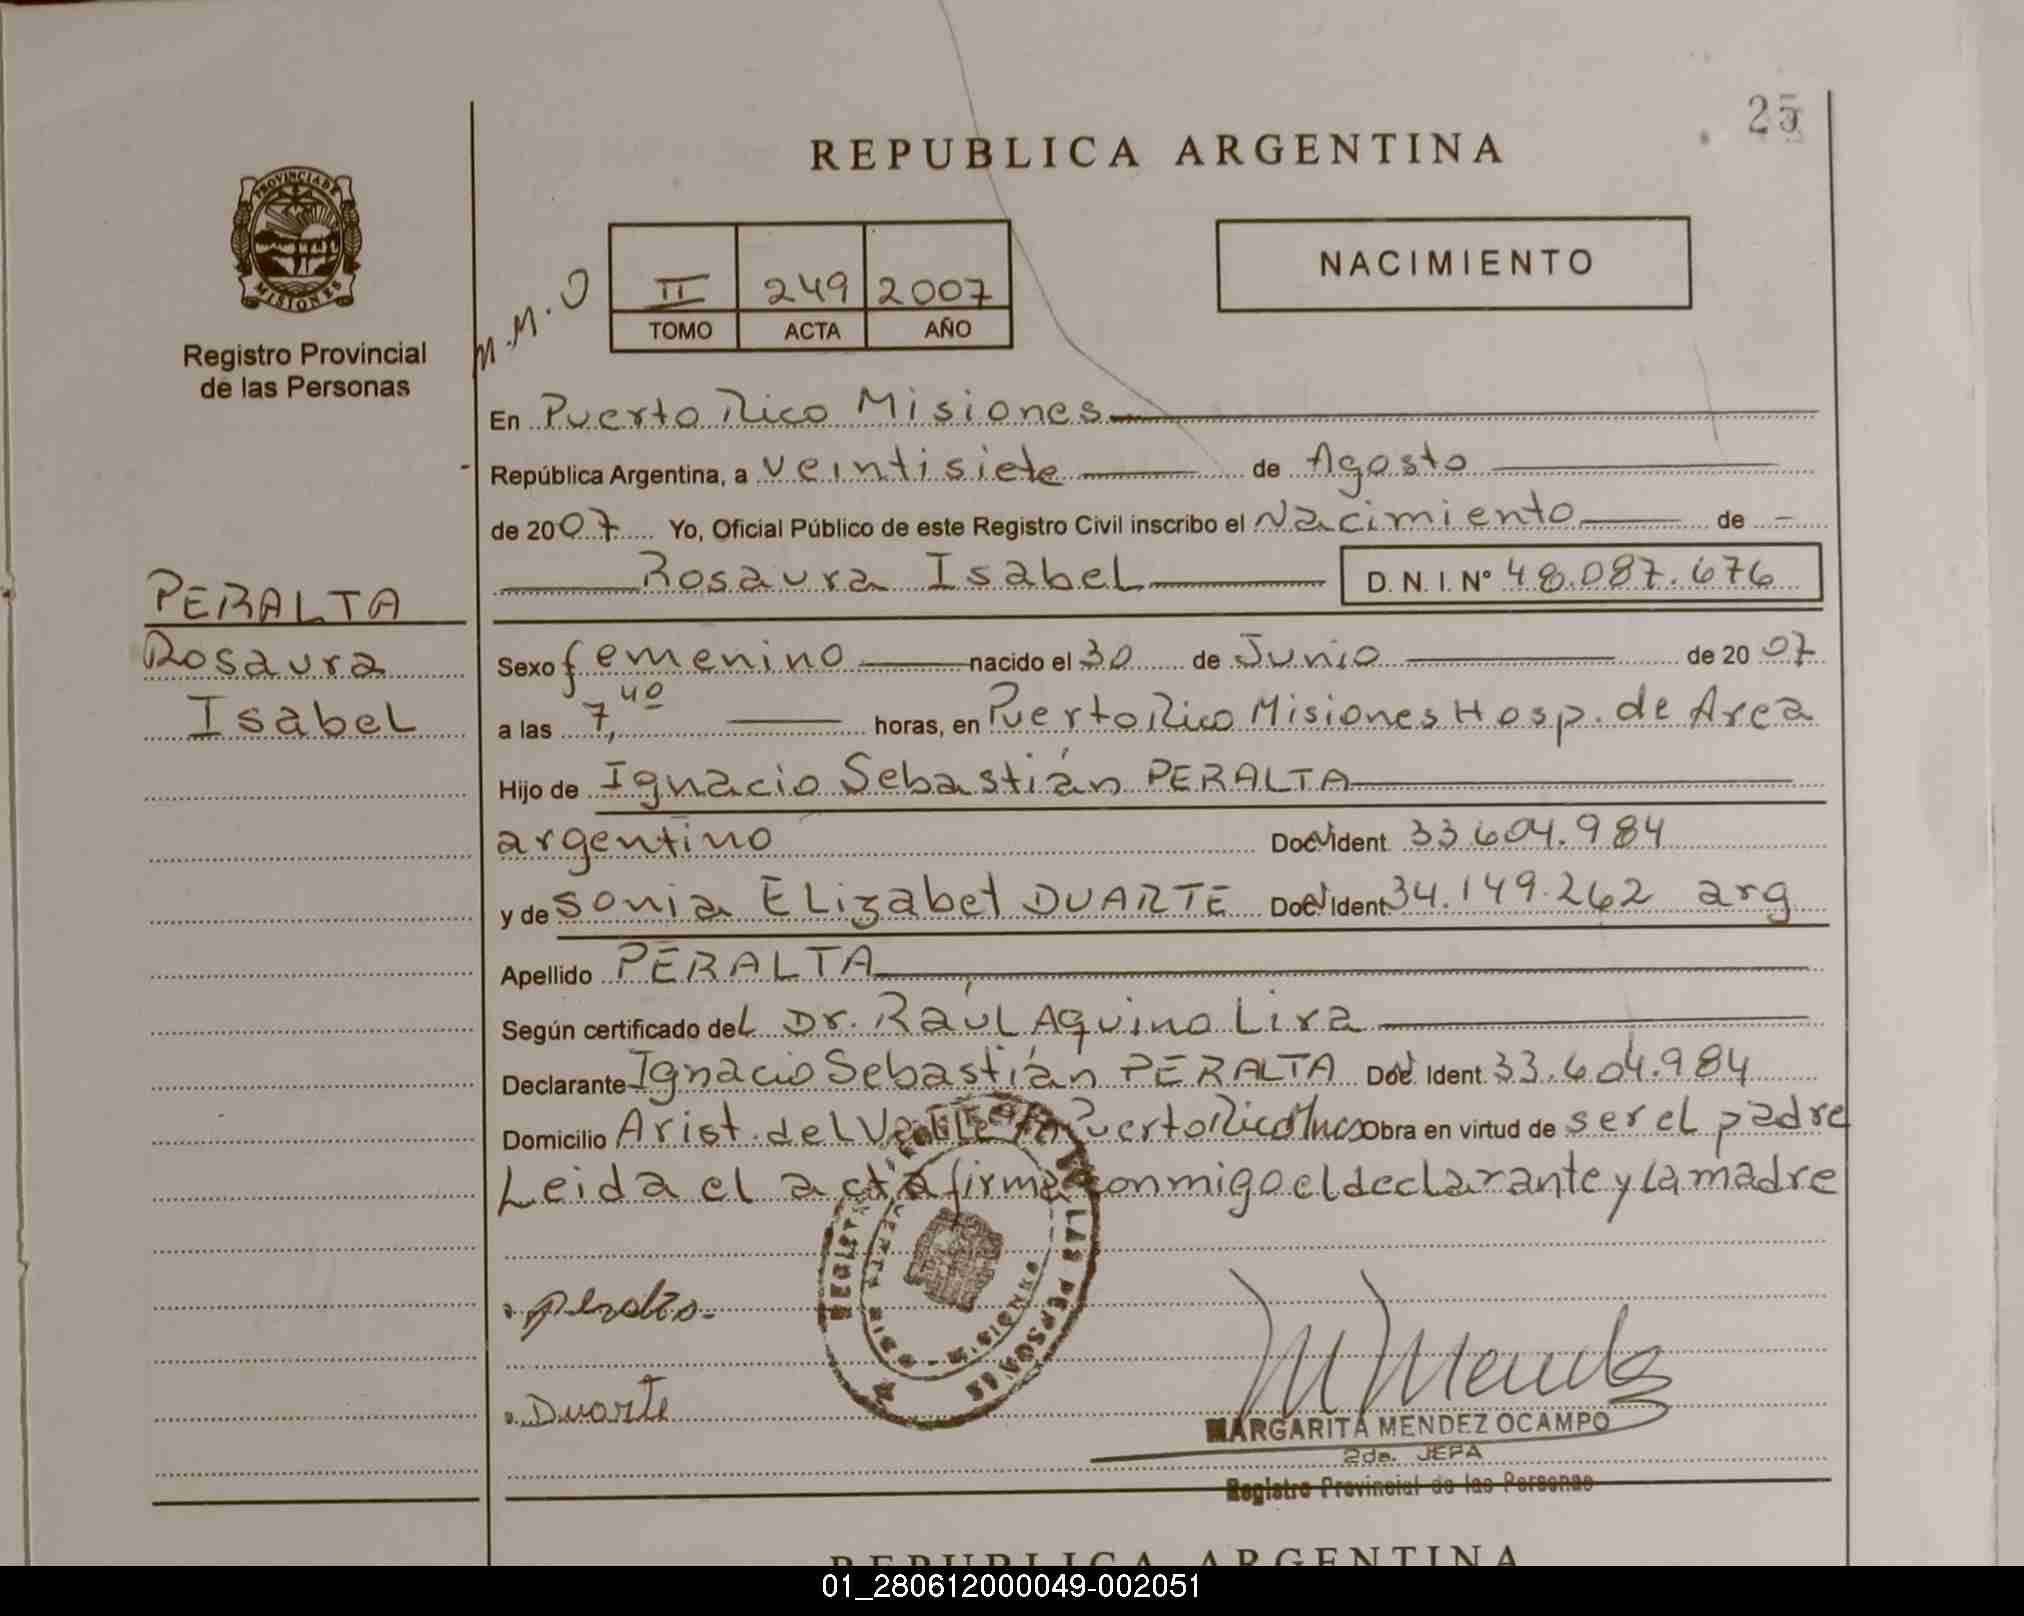 25
REPUBLICA ARGENTINA
PROVINCIA DE
MISIONES
Registro Provincial
de las Personas
M.M.O
II 249 2007
TOMO ACTA AÑO
NACIMIENTO
En Puerto Rico Misiones
República Argentina, a veintisiete de Agosto
de 2007 Yo, Oficial Público de este Registro Civil inscribo el Nacimiento de
Rosaura Isabel D. N. I. N° 48.087.676
PERALTA
Rosaura
Isabel
Sexo femenino nacido el 30 de Junio de 2007
a las 7,40 horas, en Puerto Rico Misiones Hosp. de Area
Hijo de Ignacio Sebastián PERALTA
argentino Doc Ident. 33.604.984
y de Sonia Elizabet DUARTE Doc Ident. 34.149.262 arg
Apellido PERALTA
Según certificado del Dr. Raúl Aquino Lira
Declarante Ignacio Sebastián PERALTA Doc Ident. 33.604.984
Domicilio Arist. del Valle Puerto Rico Mnes Obra en virtud de ser el padre
Leida el acta firma conmigo el declarante y la madre
Duarte
M Mendez
MARGARITA MENDEZ OCAMPO
2da. JEFA
Registro Provincial de las Personas
REPUBLICA ARGENTINA
01_280612000049-002051